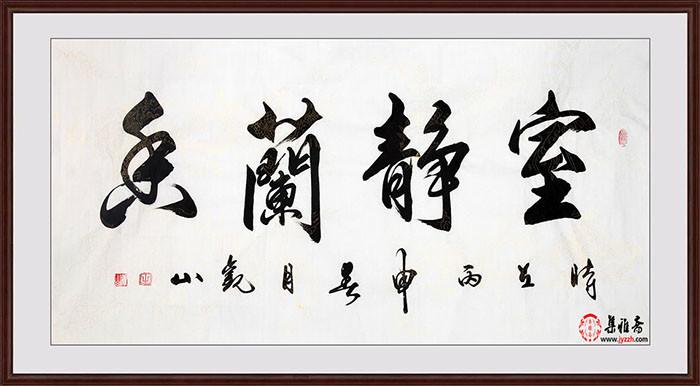 室静蘭香
時在丙申春月觀山
集雅斋
www.jyzzh.com